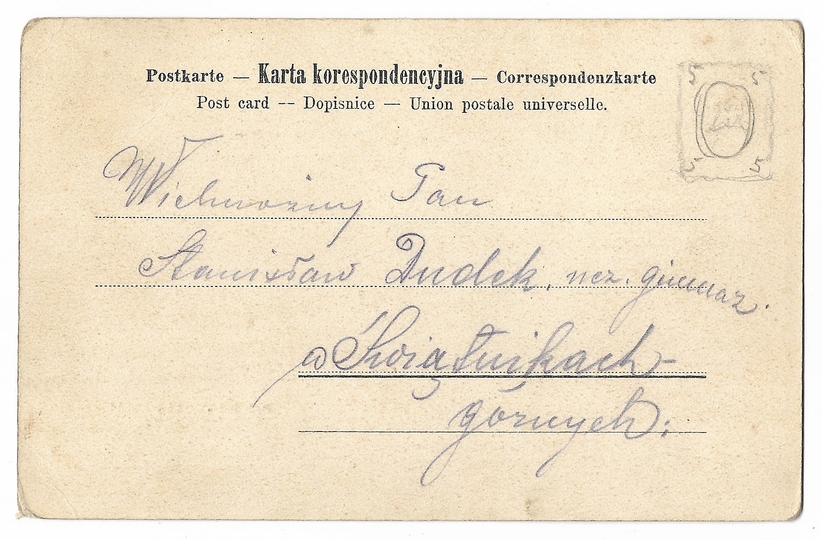 Postkarte — Karta korespondencyjna — Correspondenzkarte
Post card -- Dopisnice — Union postale universelle.
5 5
5 5
Wielmożny Pan
Stanisław Dudek, ucz. gimnaz.
w Świątnikach
górnych: